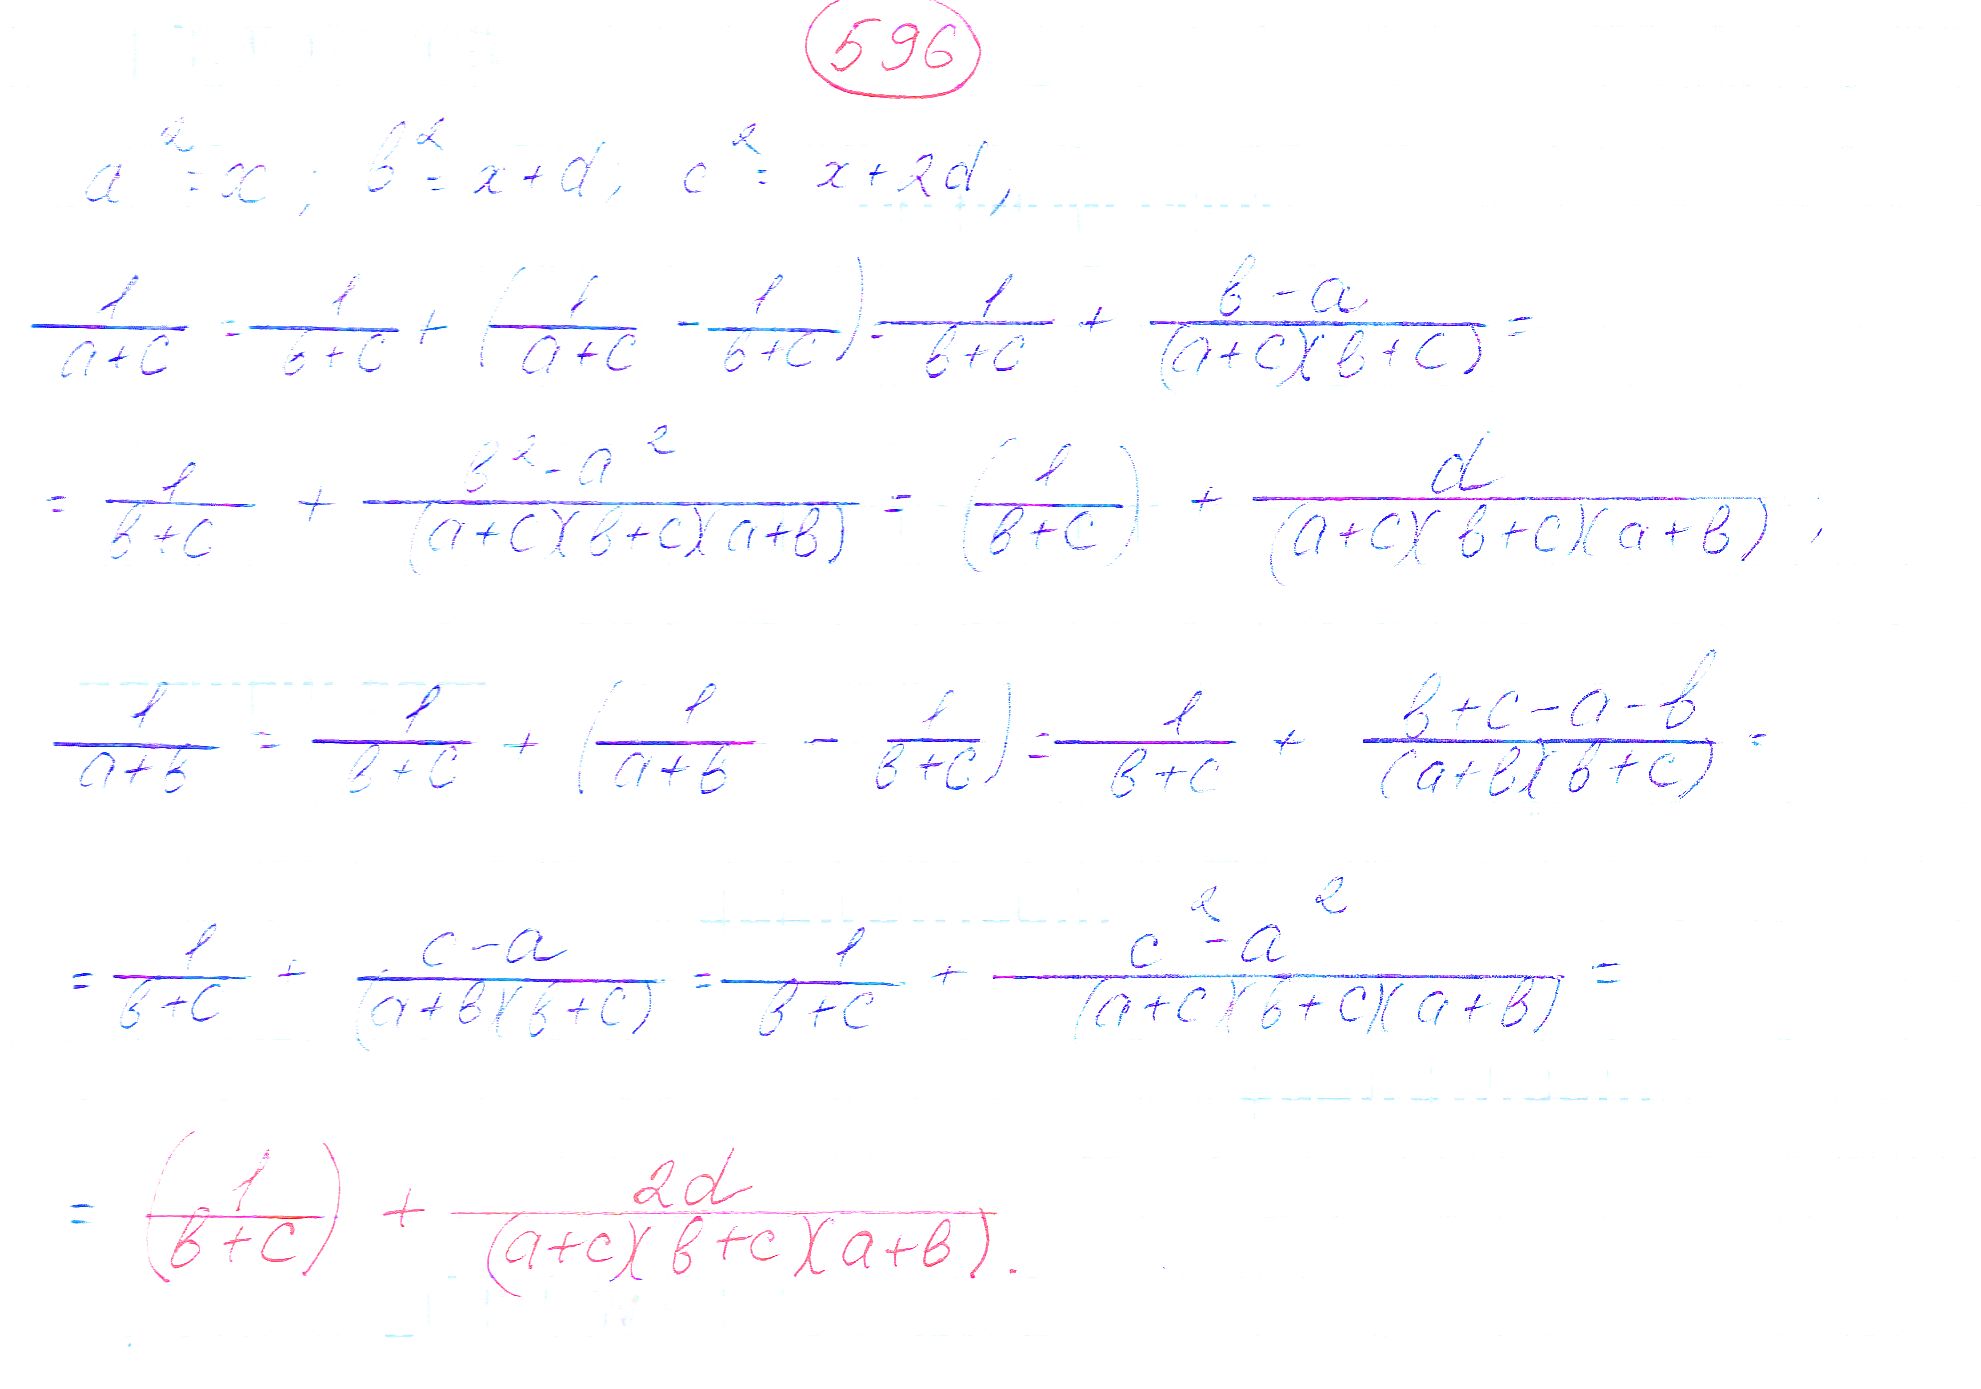 596
a² = x; b² = x+d, c² = x+2d,
1/(a+c) = 1/(b+c) + (1/(a+c) - 1/(b+c)) = 1/(b+c) + (b-a)/((a+c)(b+c)) =
= 1/(b+c) + (b²-a²)/((a+c)(b+c)(a+b)) = (1/(b+c)) + d/((a+c)(b+c)(a+b)),
1/(a+b) = 1/(b+c) + (1/(a+b) - 1/(b+c)) = 1/(b+c) + (b+c-a-b)/((a+b)(b+c)) =
= 1/(b+c) + (c-a)/((a+b)(b+c)) = 1/(b+c) + (c²-a²)/((a+c)(b+c)(a+b)) =
= (1/(b+c)) + 2d/((a+c)(b+c)(a+b)).